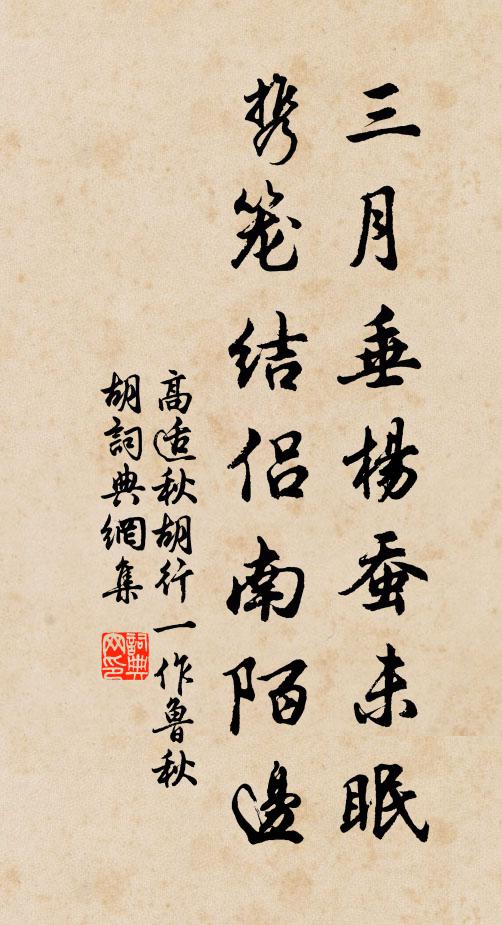 三月垂楊蚕未眠
携笼结侣南陌邊
高适秋胡行一作魯秋
胡詞典網集
詞典網印